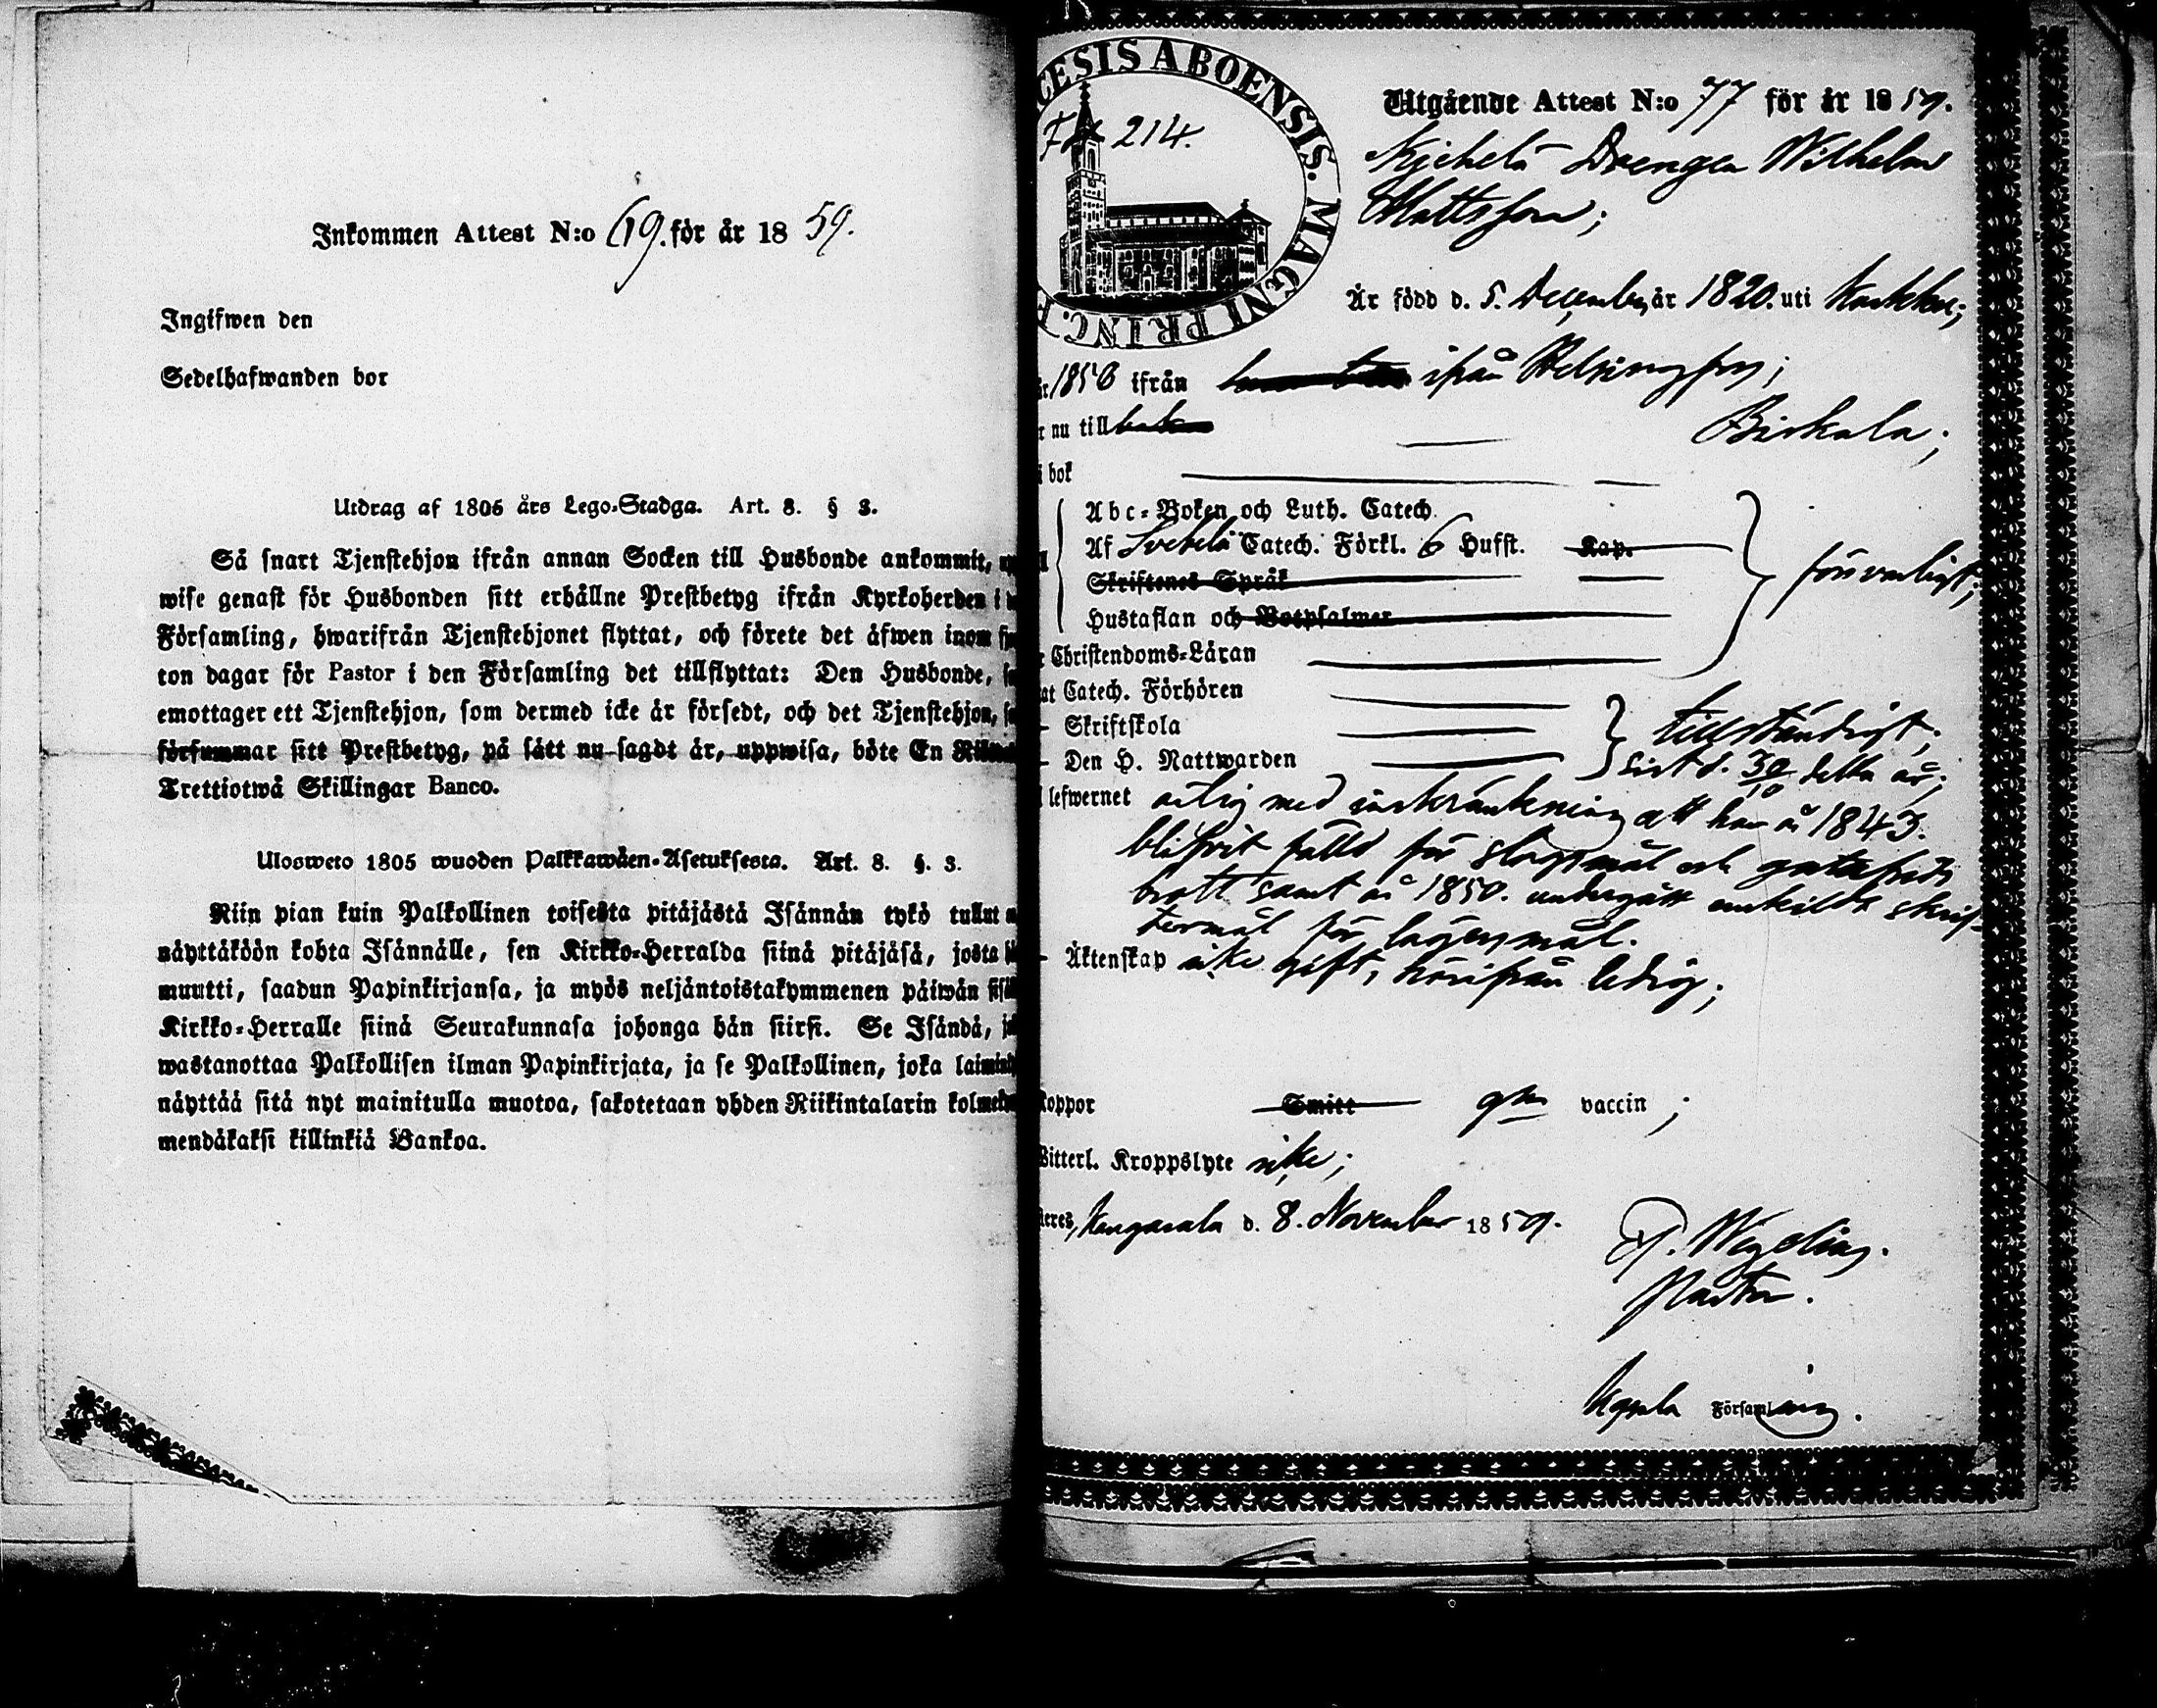 Inkommen Attest N:o 69. för år 18 59.
Ingifwen den
Sedelhafwanden bor
Utdrag af 1805 års Lego-Stadga. Art. 8. § 3.
Så snart Tjenstehjon ifrån annan Socken till Husbonde ankommit,
wise genast för Husbonden sitt erhållne Prestbetyg ifrån Kyrkoherden i
Församling, hwarifrån Tjenstehjonet flyttat, och förete det äfwen inom
ton dagar för Pastor i den Församling det tillflyttat: Den Husbonde,
emottager ett Tjenstehjon, som dermed icke är försedt, och det Tjenstehjon,
försummar sitt Prestbetyg, på sätt nu sagdt är, uppwisa, böte En
Trettiotwå Skillingar Banco.
Ulosweto 1805 wuoden Palkkawäen-Asetuksesta. Art. 8. §. 3.
Niin pian kuin Palkollinen toisesta pitäjästä Isännän tykö tullut
näyttäköön kohta Isännälle, sen Kirkko-Herralda siinä pitäjäsä, josta
muutti, saadun Papinkirjansa, ja myös neljäntoistakymmenen päiwän
Kirkko-Herralle siinä Seurakunnasa johonga hän siirsi. Se Isändä,
wastanottaa Palkollisen ilman Papinkirjata, ja se Palkollinen, joka
näyttää sitä nyt mainitulla muotoa, sakotetaan yhden Riikintalarin
mendäkaksi killinkiä Bankoa.
ESIS ABOENSIS. MAGNI PRINC.
214.
Utgående Attest N:o 77 för år 18 59.
Drengen Wilhelm
Mattsson;
Är född d. 5. December år 1820. uti Karkku;
1850 ifrån ifrån Helsingfors;
nu till Birkala;
bok
Abc-Boken och Luth. Catech.
Af Svebelii Catech. Förkl. 6 Hufst. Kap.
Skriftenes Språk
Hustaflan och Botpsalmer
försvarligt;
Christendoms-Läran
Catech. Förhören
Skriftskola
Den H. Nattwarden
tillständigt;
sist d. 30/10 detta år;
lefwernet ärlig med inskränkning att han år 1843.
blifvit fälld för slagsmål och gatufrids
brott samt år 1850. undergått enskildt skrif-
termål för lägersmål.
Äktenskap icke gift, härifrån ledig;
Koppor Smitt gm vaccin;
Witterl. Kroppslyte icke;
Kangasala d. 8. November 1859.
Wegelius.
Pastor.
Församling.